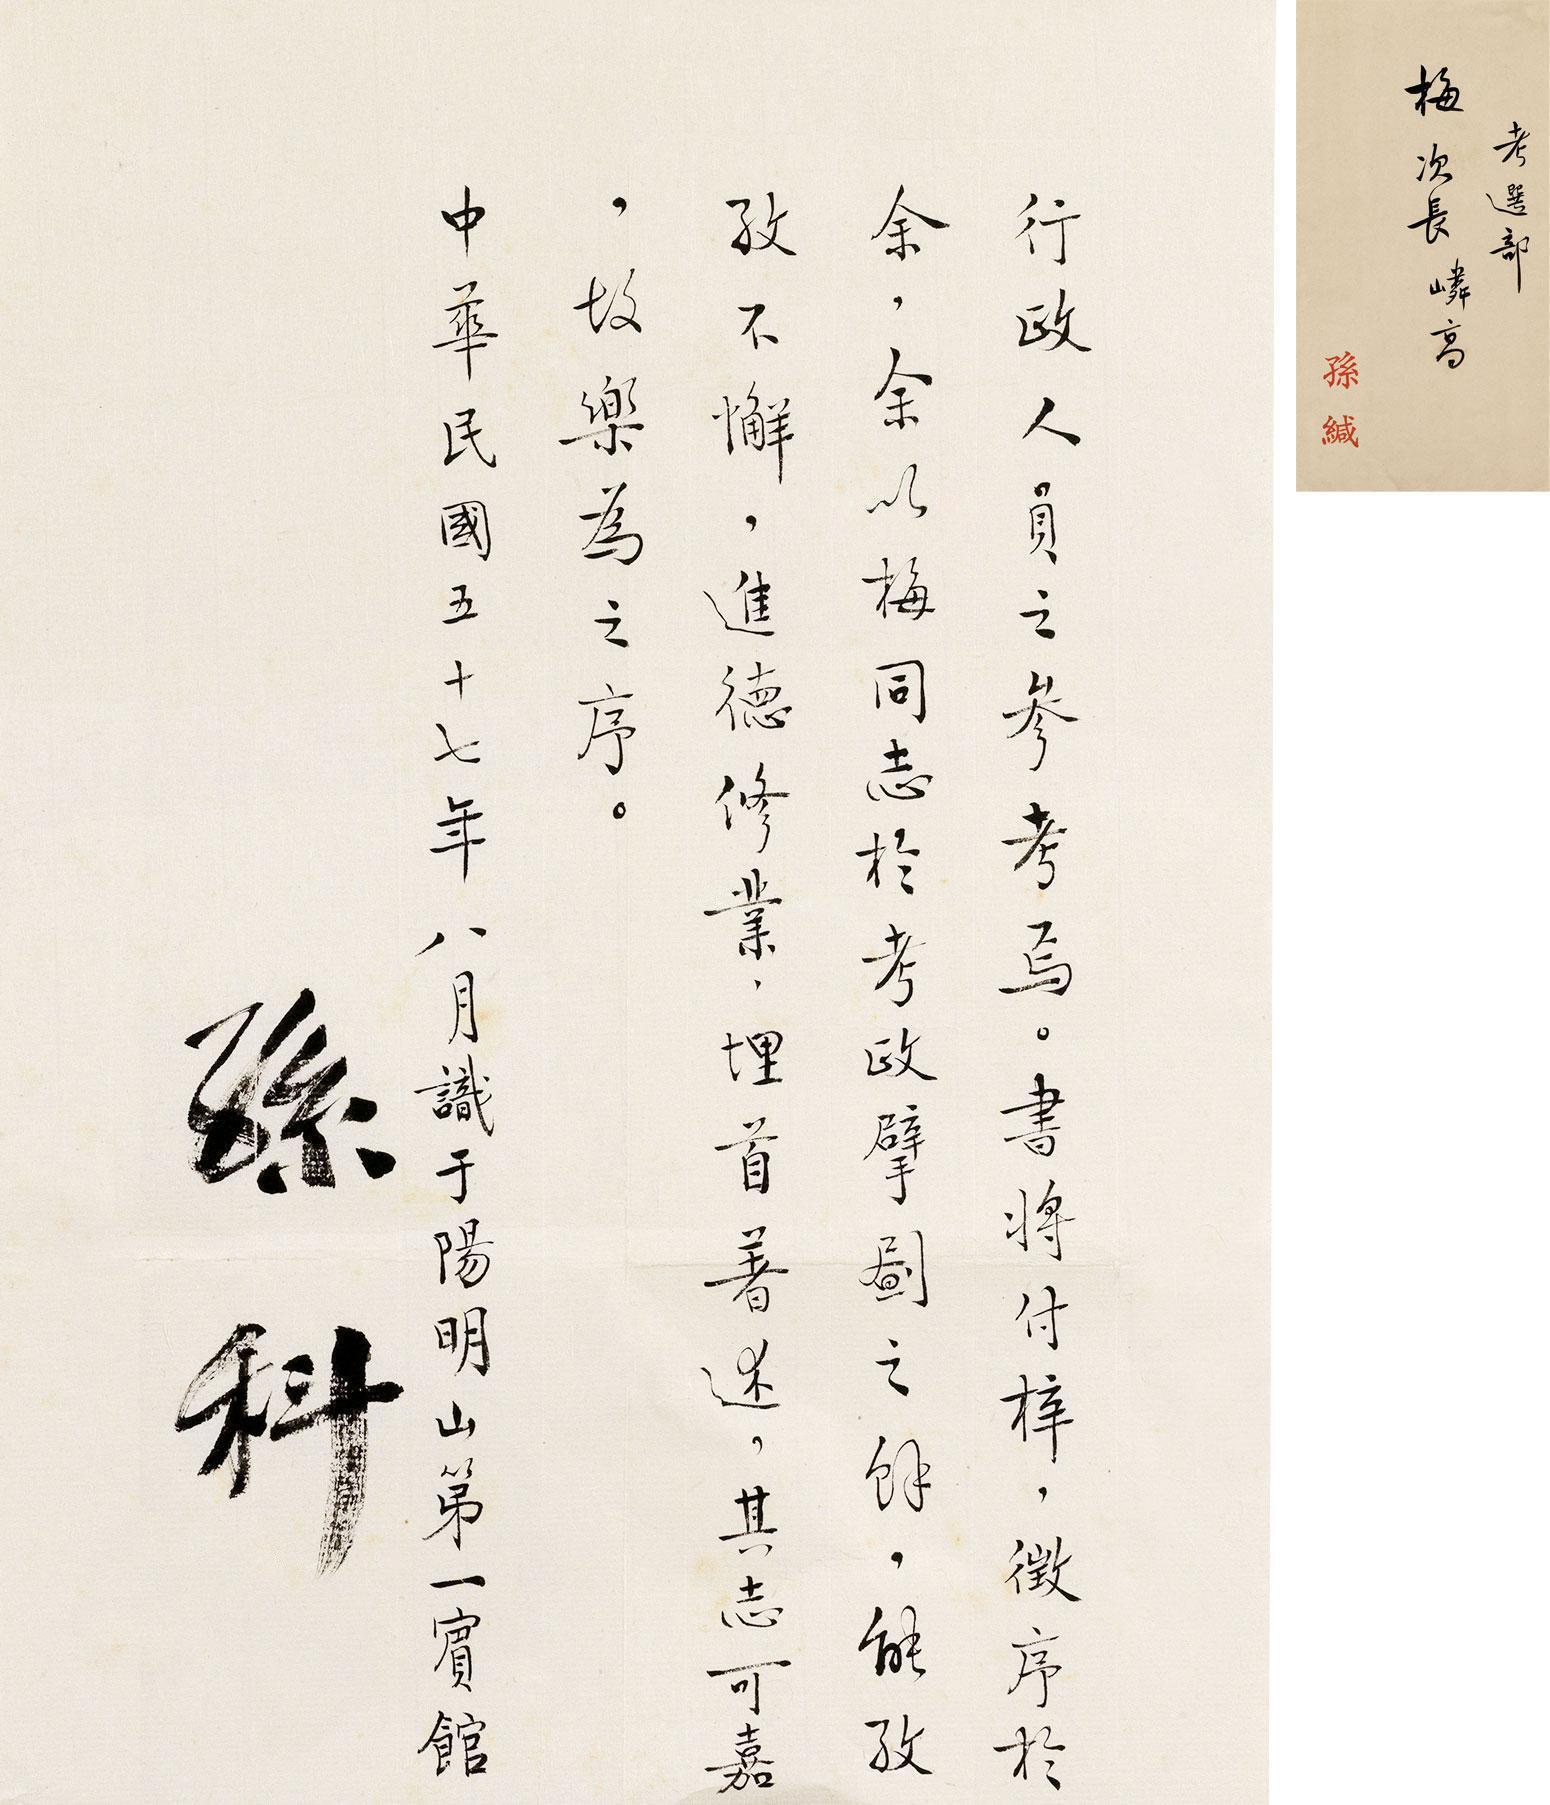 行政人員之參考焉。書將付梓，徵序於
余，余以梅同志於考政擘劃之餘，能孜
孜不懈，進德修業，埋首著述，其志可嘉
，故樂為之序。
中華民國五十七年八月識于陽明山第一賓館
孫科
考選部
梅次長嶙高
孫緘